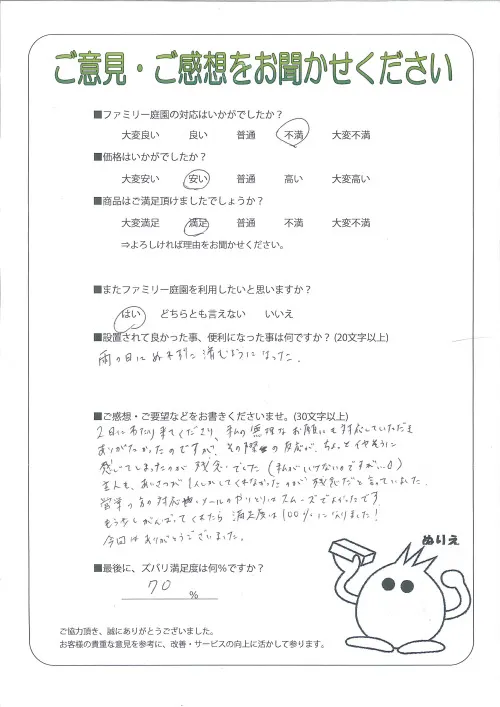 ご意見・ご感想をお聞かせください
■ファミリー庭園の対応はいかがでしたか？
大変良い 良い 普通 不満 大変不満
■価格はいかがでしたか？
大変安い 安い 普通 高い 大変高い
■商品はご満足頂けましたでしょうか？
大変満足 満足 普通 不満 大変不満
⇒よろしければ理由をお聞かせください。
■またファミリー庭園を利用したいと思いますか？
はい どちらとも言えない いいえ
■設置されて良かった事、便利になった事は何ですか？(20文字以上)
雨の日にぬれずに済むようになった。
■ご感想・ご要望などをお書きくださいませ。(30文字以上)
2日にわたり来てくださり、私の無理なお願いにも対応していただき
ありがたかったのですが、その際の反応が、ちょっとイヤそうに
感じてしまったのが残念でした(私がいけないのですが…)
主人も、あいさつが1人しかしてくれなかったのが残念だと言っていました。
営業の方の対応、メールのやりとりはスムーズでよかったです
もう少しがんばってくれたら満足度は100%になりました!
今回はありがとうございました。
ぬりえ
■最後に、ズバリ満足度は何%ですか？
70 %
ご協力頂き、誠にありがとうございました。
お客様の貴重な意見を参考に、改善・サービスの向上に活かして参ります。